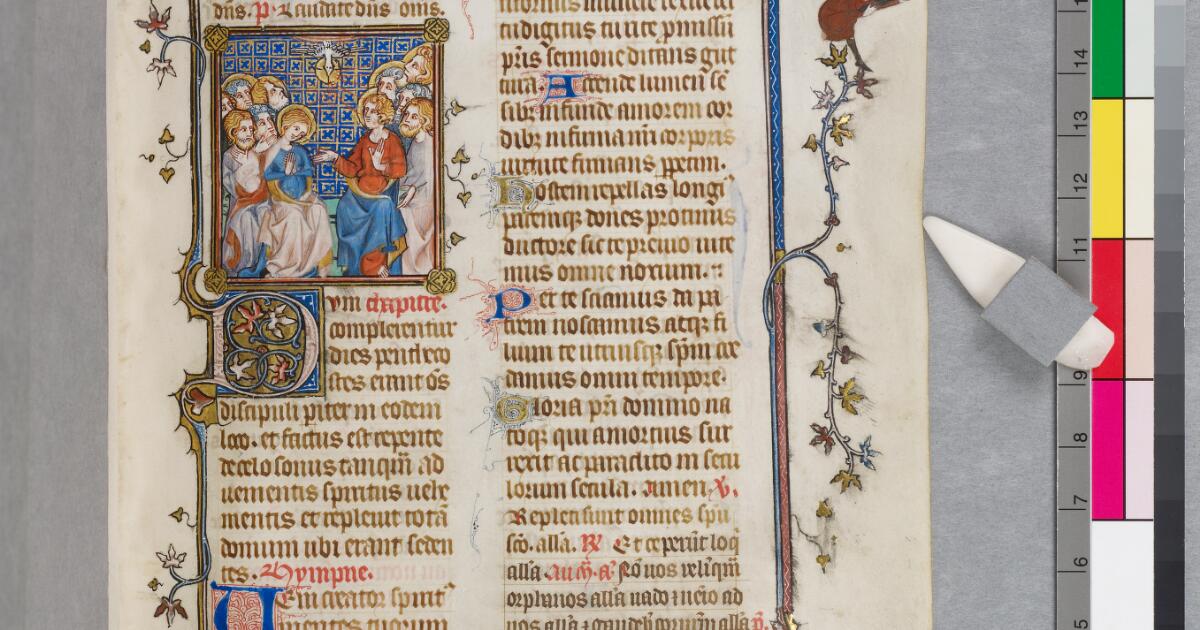 dñs. P. Laudate dñs om̄s.
um chapitre.
complerentur
dies pentheco
stes erant oēs
discipuli pariter in eodem
loco. et factus est repente
de celo sonus tanquam ad
uenientis spiritus uehe
mentis et repleuit totā
domum ubi erant seden
tes. Hympne.
Veni creator spirit᷒
mentes tuorum
tu digitus
sermone ditans gut
tura. Accende lumen sē
sib; infunde amorem cor
dib; infirma nr̄i corporis
uirtute firmans perpetim.
Hostem repellas longi᷒
pacemq; dones protinus
ductore sic te preuio uite
mus omne noxium.
Per te sciamus da pa
trem noscamus atq; fi
lium te utriusq; sp̄m cre
damus omni tempore.
Gloria pr̄i domino na
toq; qui a mortuis sur
rexit ac paraclito in secu
lorum secula. Amen. V.
Repleti sunt omnes sp̄u
sc̄o. alla. R. Et ceperūt loq̄
alla
orphanos alla uado ⁊ uenio ad
uos alla ⁊ gaudebit cor ur̄m alla
14
13
12
11
9
8
7
6
5